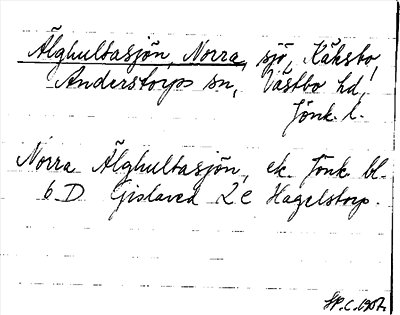 Älghultasjön, Norra, sjö, Kåhsto,
Anderstorps sn, Västbo hd,
Jönk. l.
Norra Älghultasjön, ek. Jönk bl.
6 D Gislaved 2 e Hagelstorp.